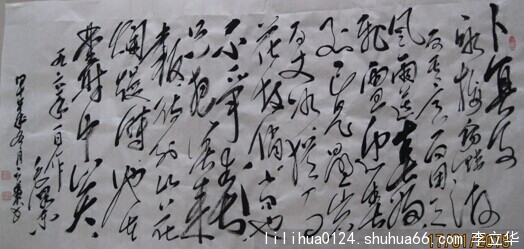 卜算子
咏梅 读陆游
反其意而用之
风雨送春归
飞雪迎春到
已是悬崖
百丈冰犹有
花枝俏俏也
不争春
只把春来
报待到山花
烂漫时她在
丛中笑
毛泽东
lilihua0124.shuhua66.com 李立华